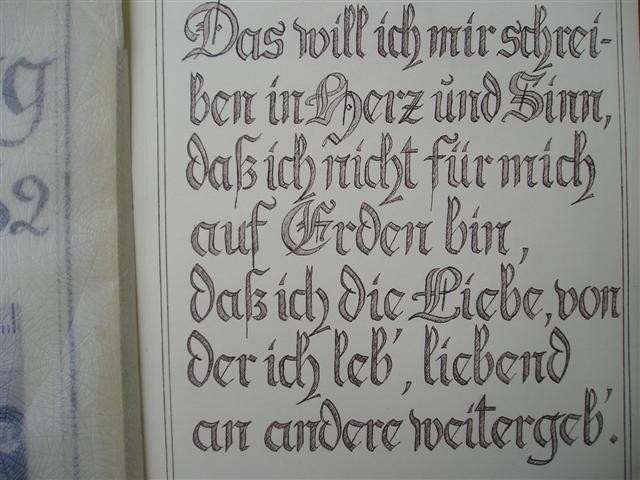 Das will ich mir schrei-
ben in Herz und Sinn,
daß ich nicht für mich
auf Erden bin,
daß ich die Liebe, von
der ich leb', liebend
an andere weitergeb'.